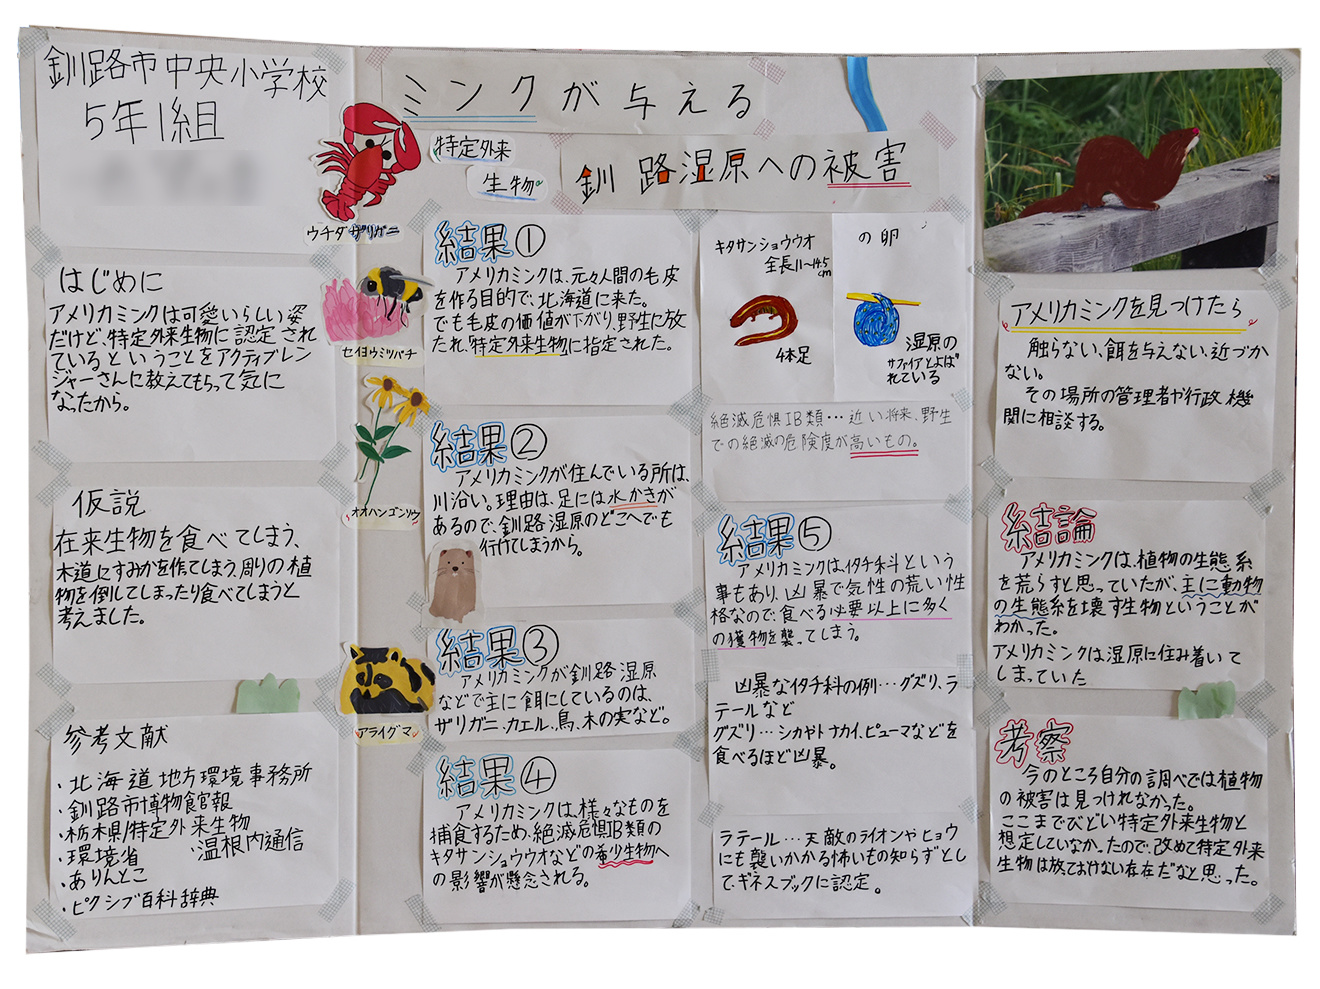 釧路市中央小学校
5年1組
ミンクが与える
特定外来
生物
釧路湿原への被害
はじめに
アメリカミンクは可愛いらしい姿
だけど、特定外来生物に認定され
ているということをアクティブレン
ジャーさんに教えてもらって気に
なったから。
仮説
在来生物を食べてしまう、
木道にすみかを作てしまう、周りの植
物を倒してしまったり食べてしまうと
考えました。
参考文献
・北海道地方環境事務所
・釧路市博物館館報
・栃木県/特定外来生物
・環境省
・温根内通信
・ありんとこ
・ピクシブ百科辞典
ウチダザリガニ
セイヨウミツバチ
オオハンゴンソウ
アライグマ
結果①
アメリカミンクは、元々人間の毛皮
を作る目的で、北海道に来た。
でも毛皮の価値が下がり、野生に放
たれ「特定外来生物」に指定された。
結果②
アメリカミンクが住んでいる所は、
川沿い。理由は、足には水かきが
あるので、釧路湿原のどこへでも
行けてしまうから。
結果③
アメリカミンクが釧路湿原
などで主に餌にしているのは、
ザリガニ、カエル、鳥、木の実など。
結果④
アメリカミンクは、様々なものを
捕食するため、絶滅危惧IB類の
キタサンショウウオなどの希少生物へ
の影響が懸念される。
キタサンショウウオ
全長11〜14.5
cm
4本足
の卵
湿原の
サファイアとよば
れている
絶滅危惧IB類…近い将来、野生
での絶滅の危険度が高いもの。
結果⑤
アメリカミンクは、イタチ科という
事もあり、凶暴で気性の荒い性
格なので、食べる必要以上に多く
の獲物を襲ってしまう。
凶暴なイタチ科の例…グズリ、ラ
テールなど
グズリ…シカやトナカイ、ピューマなどを
食べるほど凶暴。
ラテール…天敵のライオンやヒョウ
にも襲いかかる怖いもの知らずとし
て、ギネスブックに認定。
アメリカミンクを見つけたら
触らない、餌を与えない、近づか
ない。
その場所の管理者や行政機
関に相談する。
結論
アメリカミンクは、植物の生態系
を荒らすと思っていたが、主に動物
の生態系を壊す生物ということが
わかった。
アメリカミンクは湿原に住み着いて
しまっていた
考察
今のところ自分の調べでは植物
の被害は見つけれなかった。
ここまでひどい特定外来生物と
想定していなかったので、改めて特定外来
生物は放ておけない存在だなと思った。